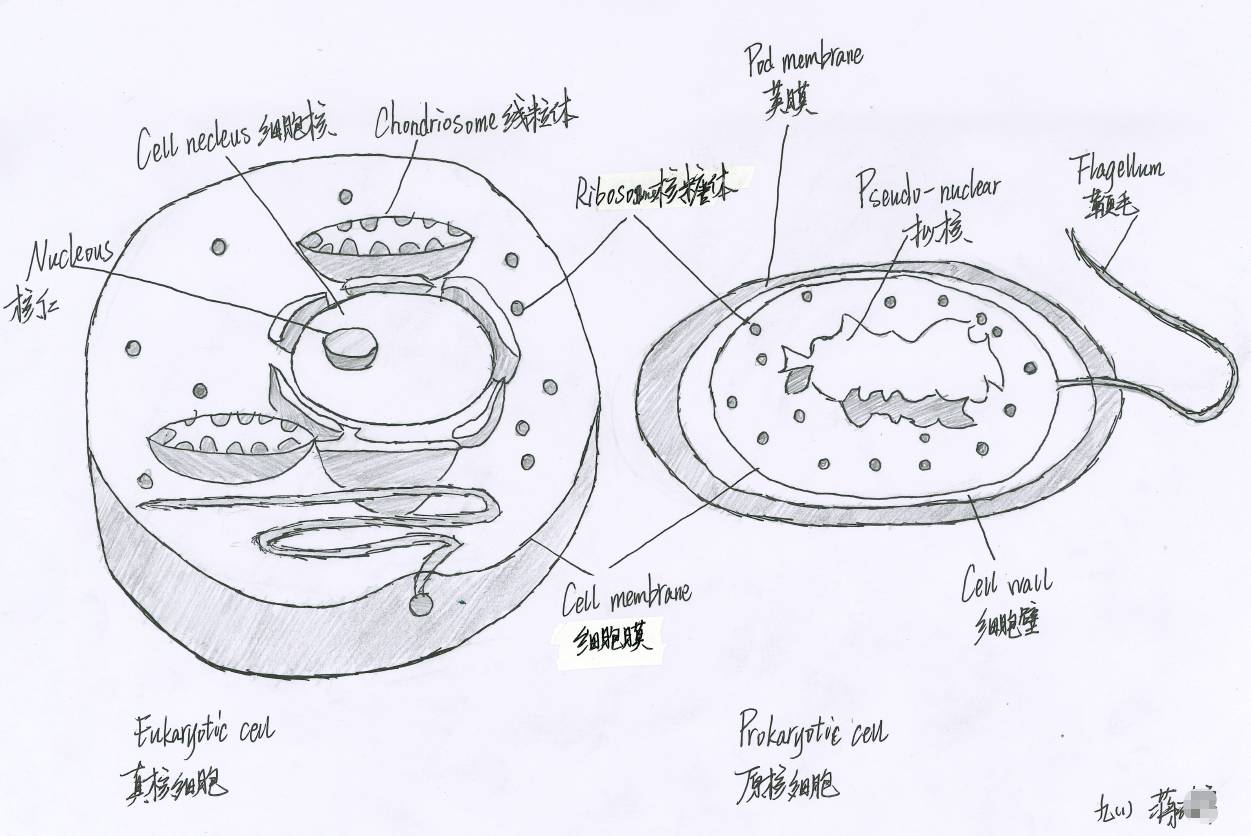 Pod membrane
荚膜
Chondriosome 线粒体
Cell necleus 细胞核
Flagellum
鞭毛
Ribosome核糖体
Pseudo-nuclear
拟核
Nucleous
核仁
Cell membrane
细胞膜
Cell wall
细胞壁
Eukaryotic cell
真核细胞
Prokaryotic cell
原核细胞
九(1)